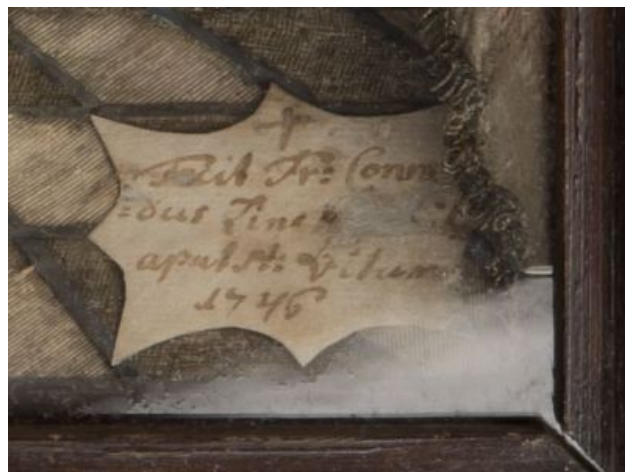 Fecit Fr: Conra
=dus Linc
apud St: Vitum
1746